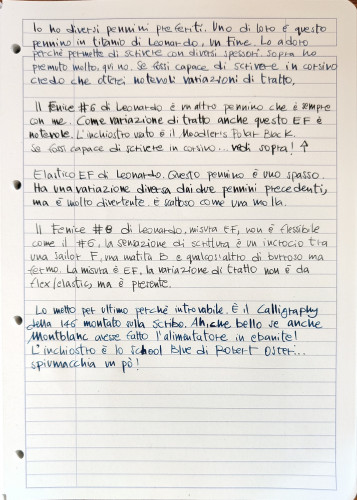 Io ho diversi pennini preferiti. Uno di loro è questo
pennino in titanio di Leonardo, un fine. Lo adoro
perché permette di scrivere con diversi spessori. Sopra ho
premuto molto, qui no. Se fossi capace di scrivere in corsivo
credo che otterrei notevoli variazioni di tratto.
Il Fenice #6 di Leonardo è un altro pennino che è sempre
con me. Come variazione di tratto anche questo EF è
notevole. L'inchiostro usato è il Noodler's Polar Black.
Se fossi capace di scrivere in corsivo... vedi sopra! ↑
Elastico EF di Leonardo. Questo pennino è uno spasso.
Ha una variazione diversa dai due pennini precedenti,
ma è molto divertente. È scattoso come una molla.
Il Fenice #8 di Leonardo, misura EF, non è flessibile
come il #6, la sensazione di scrittura è un incrocio tra
una sailor F, una matita B e qualcos'altro di burroso ma
fermo. La misura è EF, la variazione di tratto non è da
flex/elastic, ma è presente.
Lo metto per ultimo perché introvabile. È il Calligraphy
della 146 montato sulla Scribo. Ahiché bello se anche
Montblanc avesse fatto l'alimentatore in ebanite!
L'inchiostro è lo School Blue di Robert Oster...
spiumacchia un pò!